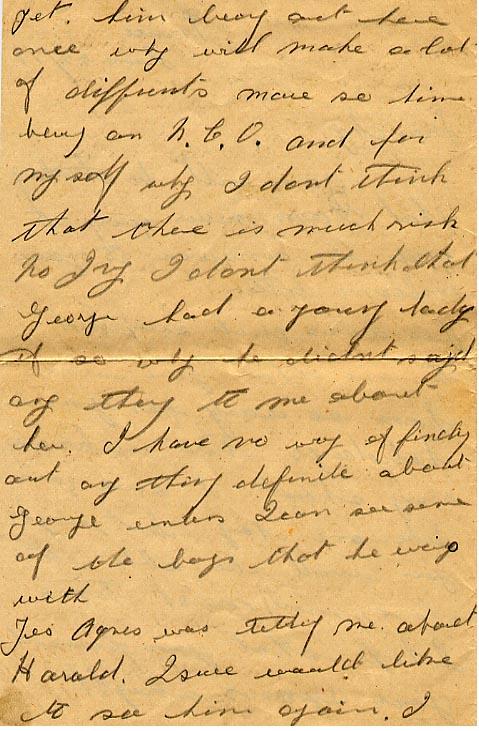 yet. him being out here
once why will make a lot
of diffirents more so him
being an N.C.O. and for
myself why I dont think
that thee is much risk
No Ivy I dont think that
George had a young lady
if so why he didnt said
any thing to me about
her. I have no way of finding
out any thing definite about
George unless I can see some
of the boys that he was
with
Yes Agnes was telling me about
Harald. I sure would like
to see him again. I